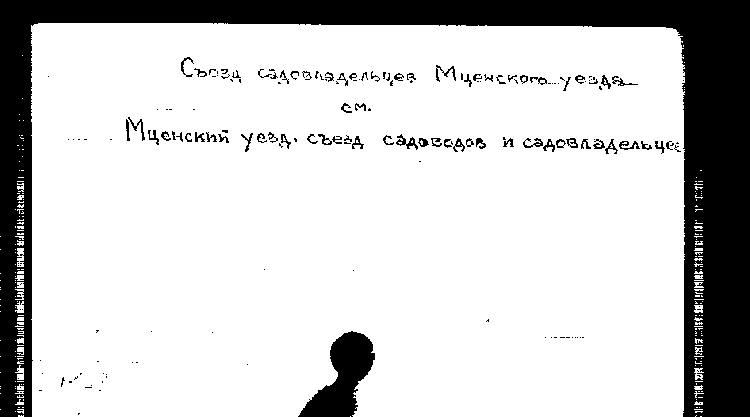 Съезд садовладельцев Мценского уезда
см.
Мценский уезд. съезд садоводов и садовладельцев